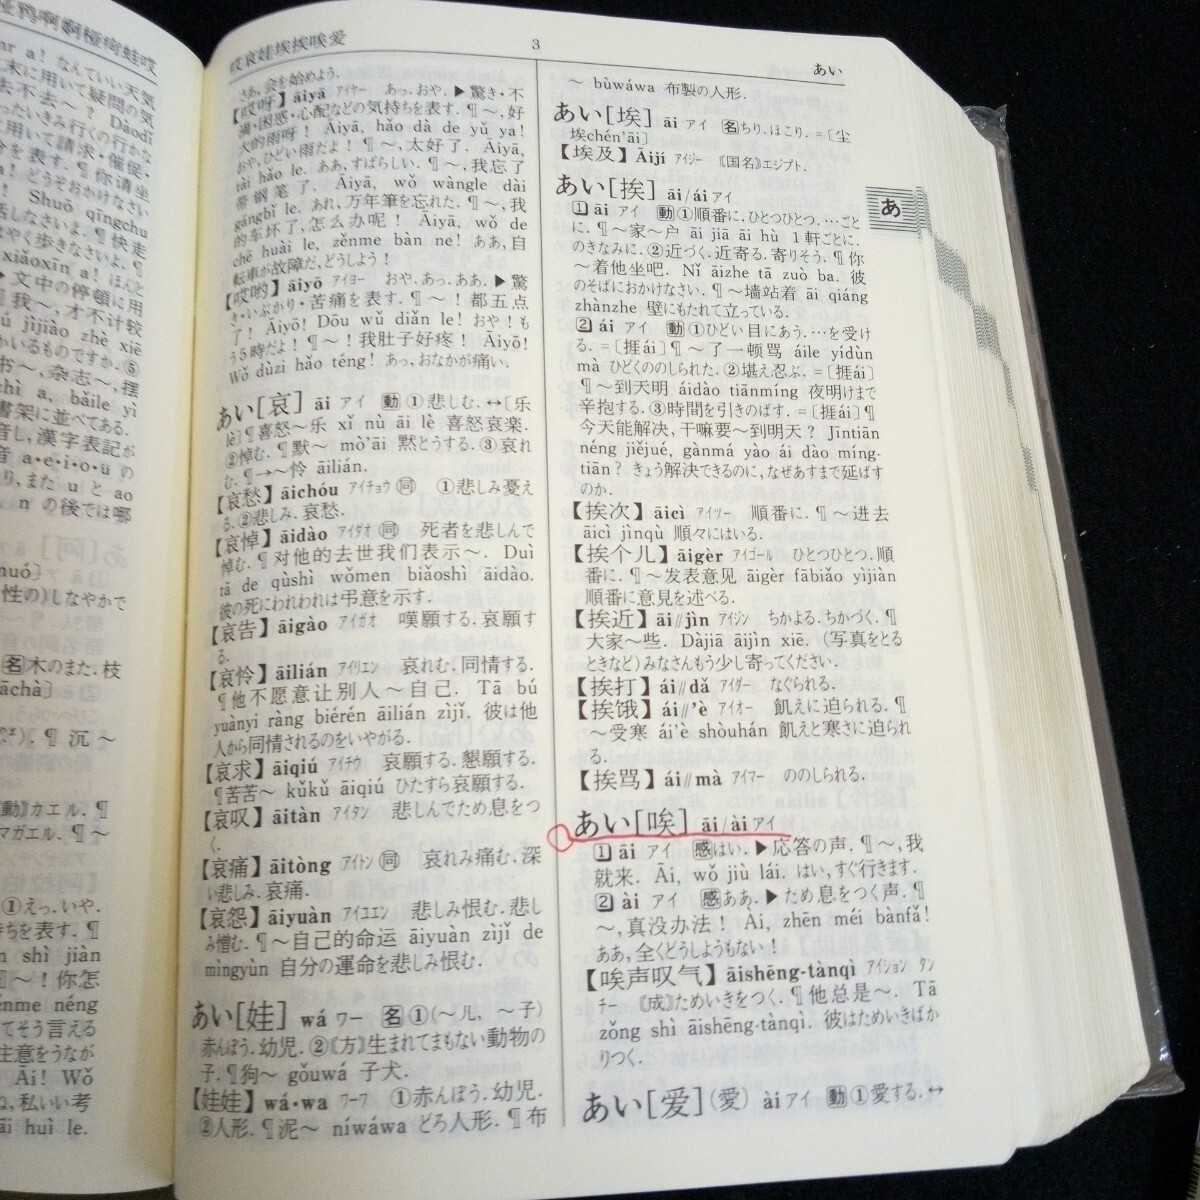 桠鸦啊婀桠疴蛙哎
nr a! なんていい天気
末に用いて疑問の気
去不去～? Dàodǐ
ったいきみ行くの行かな
に用いて請求・催促・
分を表す. ¶你请坐
a! どうぞおかけなさい
! Shuō qīngchu
話しなさいよ. ¶快走
はやく歩きなさいよ. ¶
xiǎoxīn a! ほんと
▶文中の停頓に用
我～,才不计较
ú jìjiào zhè xiē
かいるものですか. ⑤
书～,杂志～,摆
chì a, bǎile yì
書架に並べてある.
音し,漢字表記が
音 a・e・i・o・ü の
り,また u と ao
n の後では哪
nuó]
性の)しなやかで
名木のまた. 枝
āchà]
¶ 沉～
動)カエル. ¶
マガエル. ¶～
①えっ. いや.
ちを表す. ¶
n shì jiàn
¶～! 你怎
énme néng
てそう言える
主意をうなが
Āi! Wǒ
ね,私いい考
āi huì le.
哎哀娃埃挨唉爱
3
あい
さあ,会を始めよう.
【哎呀】āiyā アイヤー あっ.おや. ▶驚き・不
満・困惑・心配などの気持ちを表す. ¶～,好
大的雨呀! Āiyā, hǎo dà de yǔ ya!
おや,ひどい雨だよ! ¶～,太好了. Āiyā,
tài hǎo le. ああ,すばらしい. ¶～,我忘了
带钢笔了. Āiyā, wǒ wàngle dài
gāngbǐ le. あれ, 万年筆を忘れた. ¶～,我
的车坏了,怎么办呢! Āiyā, wǒ de
chē huài le, zěnme bàn ne! ああ,自
転車が故障だ,どうしよう!
【哎哟】āiyō アイヨー おや.あっ.ああ. ▶驚
き・いぶかり・苦痛を表す. ¶～! 都五点
了! Āiyō! Dōu wǔ diǎn le! おや!も
う5時だよ! ¶～!我肚子好疼! Āiyō!
Wǒ dùzi hǎo téng! あっ,おなかが痛い.
あい[哀] āi アイ 動①悲しむ. ↔[乐
lè]¶喜怒～乐 xǐ nù āi lè 喜怒哀楽.
②悼む. ¶默～ mò'āi 黙とうする. ③哀れ
む. ¶→～怜 āilián.
【哀愁】āichóu アイチョウ 同 ①悲しみ憂え
る. ②悲しみ.哀愁.
【哀悼】āidào アイダオ 同 死者を悲しんで
悼む. ¶对他的去世我们表示～. Duì
tā de qùshì wǒmen biǎoshì āidào.
彼の死にわれわれは弔意を示す.
【哀告】āigào アイガオ 嘆願する.哀願す
る.
【哀怜】āilián アイリエン 哀れむ.同情する.
¶他不愿意让别人～自己. Tā bú
yuànyi ràng biérén āilián zìjǐ. 彼は他
人から同情されるのをいやがる.
【哀求】āiqiú アイチウ 哀願する.懇願する.
¶苦苦～ kǔkǔ āiqiú ひたすら哀願する.
【哀叹】āitàn アイタン 悲しんでため息をつ
く.
【哀痛】āitòng アイトン 同 哀れみ痛む.深
い悲しみ.哀痛.
【哀怨】āiyuàn アイユエン 悲しみ恨む.悲し
み憎む. ¶～自己的命运 āiyuàn zìjǐ de
mìngyùn 自分の運命を悲しみ恨む.
あい[娃] wá ワー 名①(～儿, ～子)
赤んぼう.幼児. ②《方》生まれてまもない動物の
子. ¶狗～ gǒuwá 子犬.
【娃娃】wá・wa ワーワ ①赤んぼう.幼児.
②人形. ¶泥～ níwáwa どろ人形. ¶布
～ bùwáwa 布製の人形.
あい[埃] āi アイ 名ちり.ほこり. =[尘
埃chén'āi]
【埃及】Āijí アイジー 《国名》エジプト.
あい[挨] āi/ái アイ
1 āi アイ 動①順番に.ひとつひとつ.…ごと
に. ¶～家～户 āi jiā āi hù 1軒ごとに.
のきなみに. ②近づく.近寄る.寄りそう. ¶你
～着他坐吧. Nǐ āizhe tā zuò ba. 彼
のそばにおかけなさい. ¶～墙站着 āi qiáng
zhànzhe 壁にもたれて立っている.
2 ái アイ 動①ひどい目にあう.…を受け
る. =[捱ái]¶～了一顿骂 áile yídùn
mà ひどくののしられた. ②堪え忍ぶ. =[捱ái]
¶～到天明 áidào tiānmíng 夜明けまで
辛抱する. ③時間を引きのばす. =[捱ái]¶
今天能解决,干嘛要～到明天? Jīntiān
néng jiějué, gànmá yào ái dào míng-
tiān? きょう解決できるのに,なぜあすまで延ばす
のか.
【挨次】āicì アイツー 順番に. ¶～进去
āicì jìnqù 順々にはいる.
【挨个儿】āigèr アイゴール ひとつひとつ.順
番に. ¶～发表意见 āigèr fābiǎo yìjiàn
順番に意見を述べる.
【挨近】āi∥jìn アイジン ちかよる.ちかづく. ¶
大家～些. Dàjiā āijìn xiē. (写真をとる
ときなど)みなさんもう少し寄ってください.
【挨打】ái∥dǎ アイダー なぐられる.
【挨饿】ái∥'è アイオー 飢えに迫られる. ¶
～受寒 ái'è shòuhán 飢えと寒さに迫られ
る.
【挨骂】ái∥mà アイマー ののしられる.
あい[唉] āi/ài アイ
1 āi アイ 感はい. ▶応答の声. ¶～,我
就来. Āi, wǒ jiù lái. はい,すぐ行きます.
2 ài アイ 感ああ. ▶ため息をつく声. ¶
～,真没办法! Ài, zhēn méi bànfǎ!
ああ,全くどうしようもない!
【唉声叹气】āishēng-tànqì アイション タン
チー 《成》ためいきをつく. ¶他总是～. Tā
zǒng shì āishēng-tànqì. 彼はためいきばか
りつく.
あい[爱](愛) ài アイ 動①愛する. ↔
あ